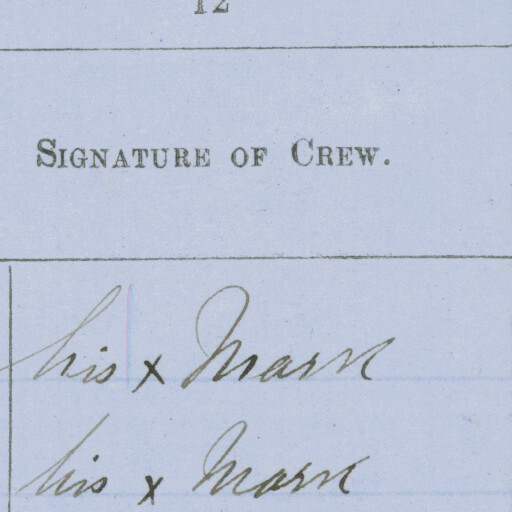 12
SIGNATURE OF CREW.
his x Mark
his x Mark